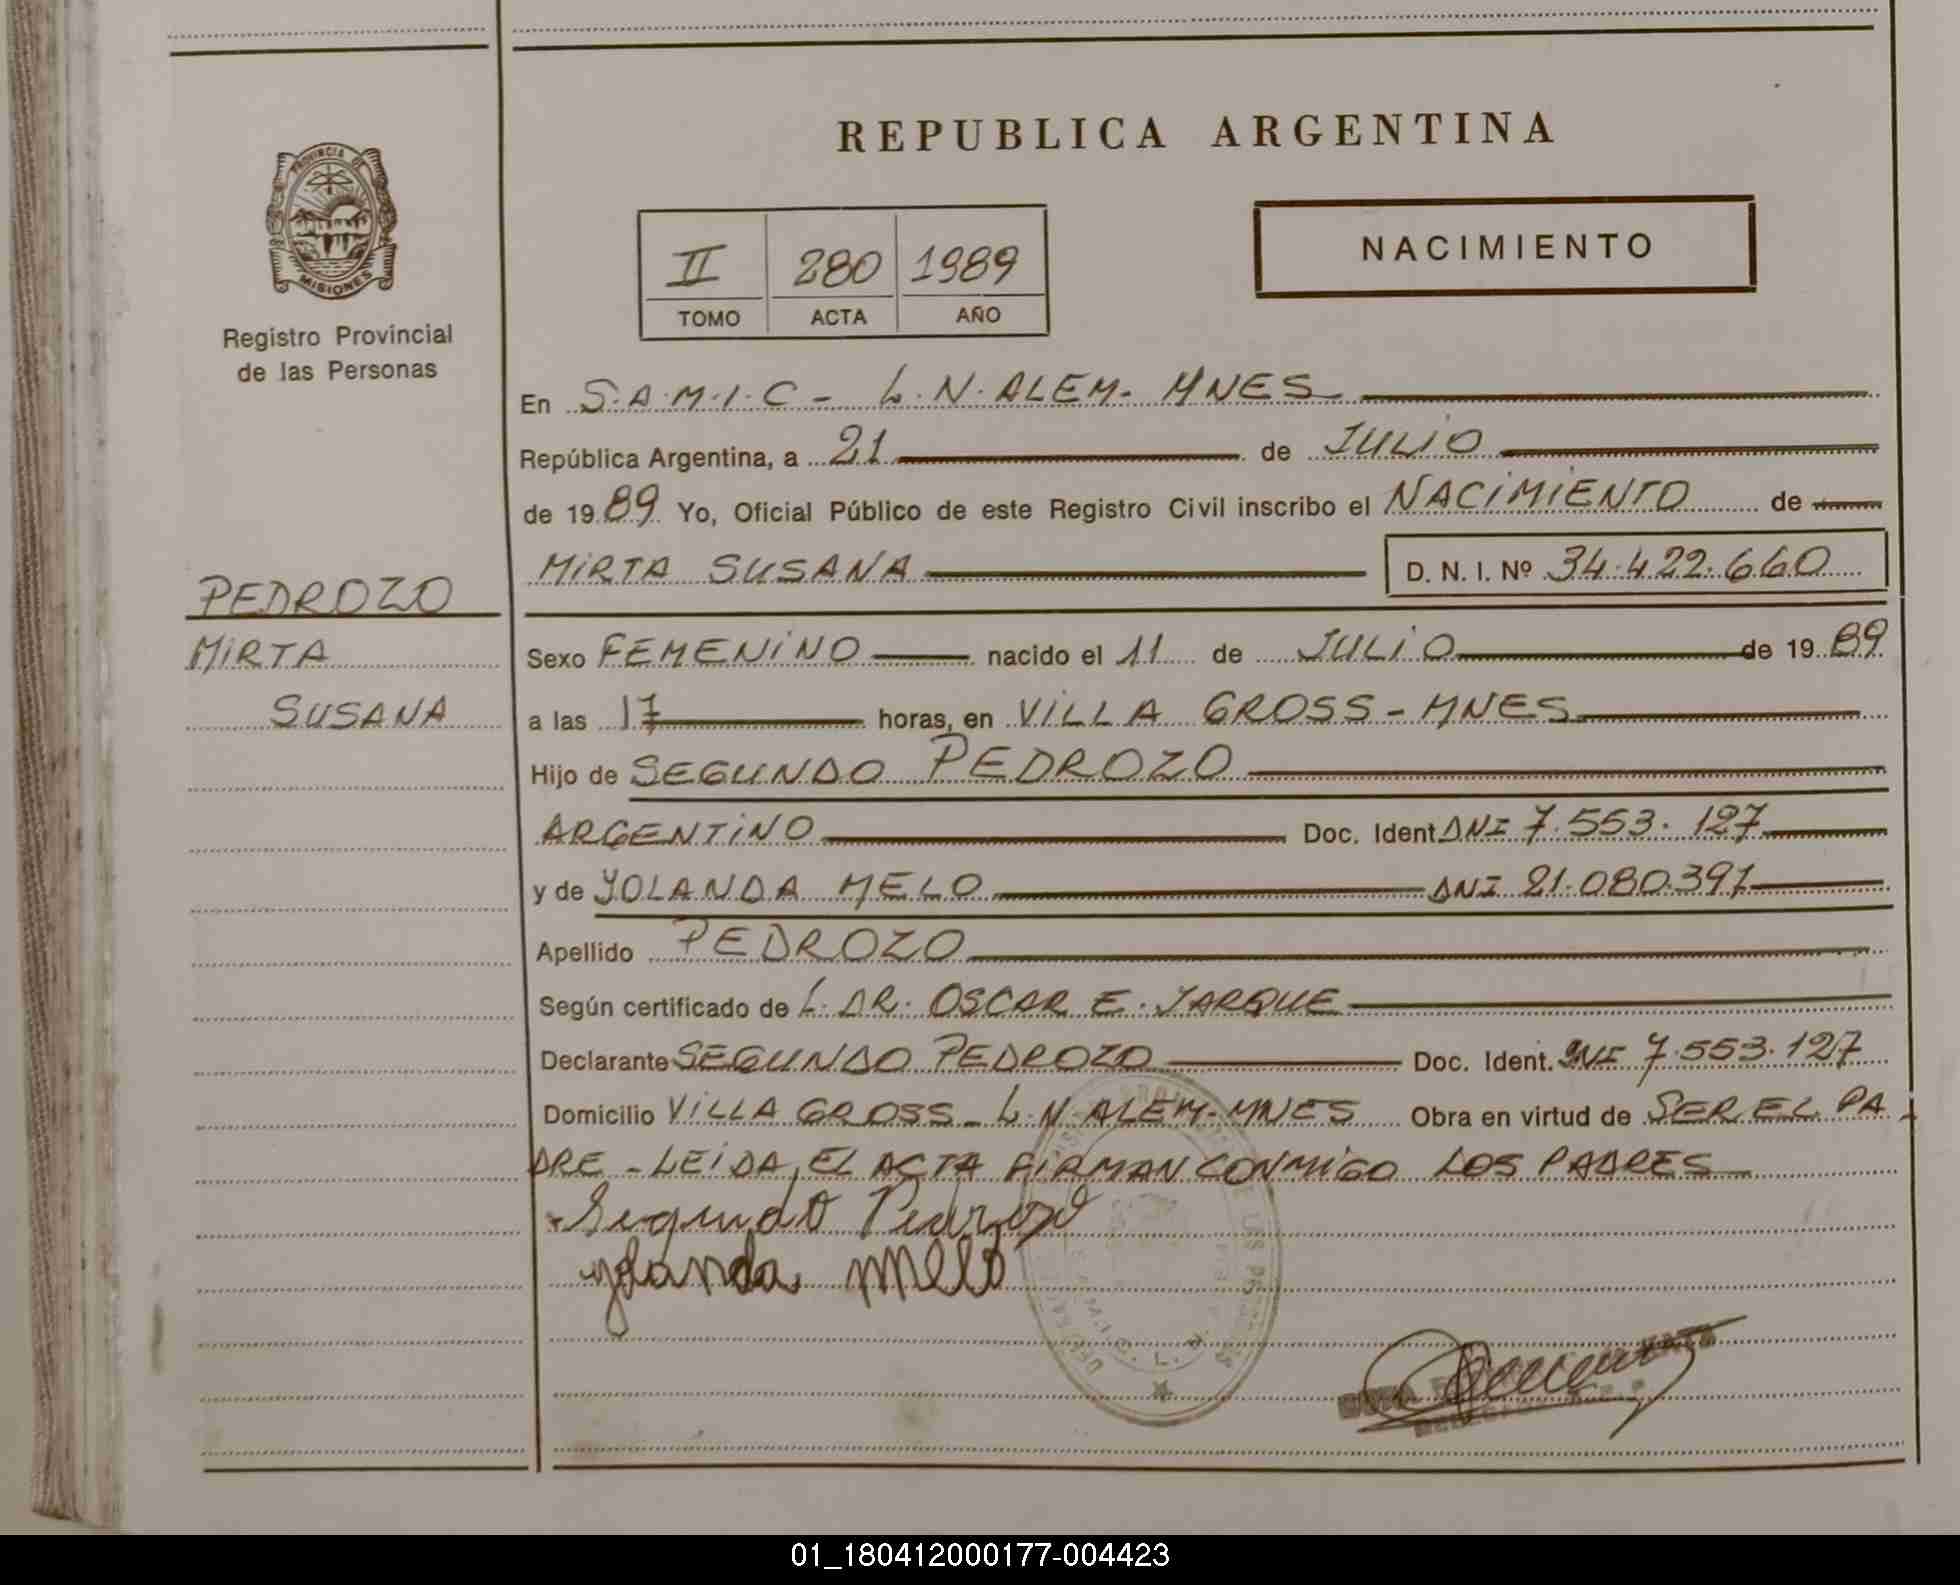 PROVINCIA DE
MISIONES
Registro Provincial
de las Personas
PEDROZO
MIRTA
SUSANA
REPUBLICA ARGENTINA
II 280 1989
TOMO ACTA AÑO
NACIMIENTO
En S.A.M.I.C - L.N.ALEM- MNES
República Argentina, a 21 de JULIO
de 1989 Yo, Oficial Público de este Registro Civil inscribo el NACIMIENTO de
MIRTA SUSANA D. N. I. Nº 34.422.660
Sexo FEMENINO nacido el 11 de JULIO de 1989
a las 17 horas, en VILLA GROSS - MNES
Hijo de SEGUNDO PEDROZO
ARGENTINO Doc. Ident DNI 7.553.127
y de YOLANDA MELO DNI 21.080.391
Apellido PEDROZO
Según certificado de L. DR. OSCAR E. JARQUE
Declarante SEGUNDO PEDROZO Doc. Ident. DNI 7.553.127
Domicilio VILLA GROSS - L.N ALEM-MNES Obra en virtud de SER EL PA-
DRE - LEIDA EL ACTA FIRMAN CONMIGO LOS PADRES
Segundo Pedrozo
yolanda melo
01_180412000177-004423